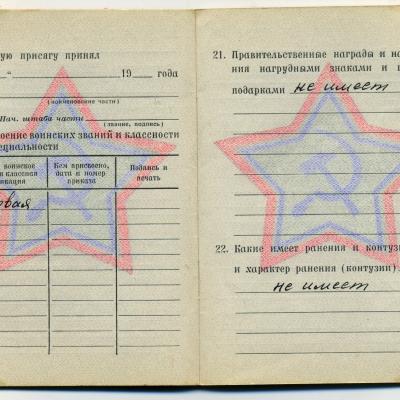 ую присягу принял
“ 19 года
(наименование части)
Нач. штаба части
(звание, подпись)
оение воинских званий и классности
ециальности
воинское
и классная
икация
Кем присвоено,
дата и номер
приказа
Подпись и
печать
овая
21. Правительственные награды и на
ния нагрудными знаками и
подарками не имеет
22. Какие имеет ранения и контуз
и характер ранения (контузии)
не имеет